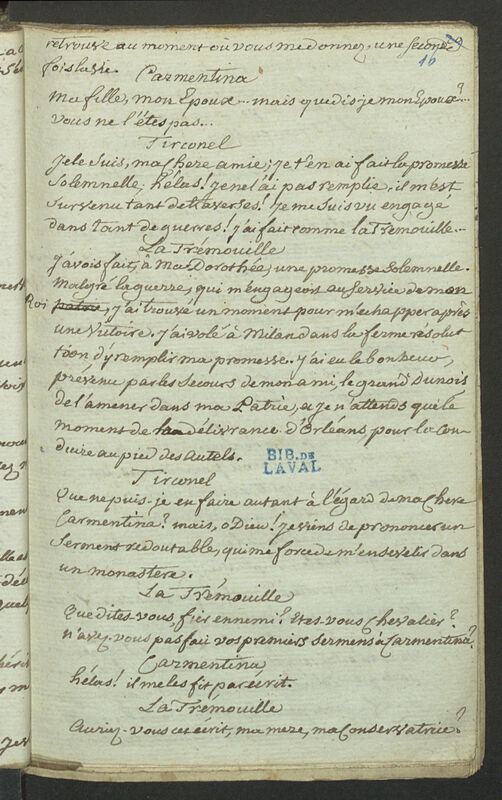 retrouve au moment où vous me donnez, une seconde
16
fois la vie.
Carmentina
ma fille, mon Epoux... mais que dis-je mon Epoux?
vous ne l'êtes pas...
Tirconel
Je le suis, ma chere amie; je t'en ai fait la promesse
Solemnelle; hélas! je ne l'ai pas remplie, il m'est
survenu tant de traverses! je me suis vu engagé
dans tant de guerres! j'ai fait comme la Tremouille...
La Trémouille
J'avois fait, à Ma Dorothée, une promesse Solemnelle.
Malgré la guerre, qui m'engageoit au service de mon
Roi patrie, j'ai trouvé un moment pour m'echapper après
une Victoire. j'ai volé à Milan dans la ferme résolut
tion d'y remplir ma promesse. j'ai eu le bonheur,
prévenu par les secours de mon ami, le grand Dunois
de l'amener dans ma Patrie, & je n'attends que le
moment de la délivrance d'Orleans, pour la con-
duire au pied des autels.
BIB. DE
LAVAL
Tirconel
Que ne puis-je en faire autant à l'égard de ma chere
Carmentina! mais, o Dieu! je viens de prononcer un
Serment redoutable, qui me force de m'ensevelir dans
un monastere.
La Trémouille
Que dites-vous, fier ennemi? Etes-vous chevalier?
n'avez-vous pas fait vos premiers sermens à Carmentina?
Carmentina
hélas! il me les fit par écrit.
La Trémouille
Auriez-vous cet écrit, ma mere, ma Conservatrice?